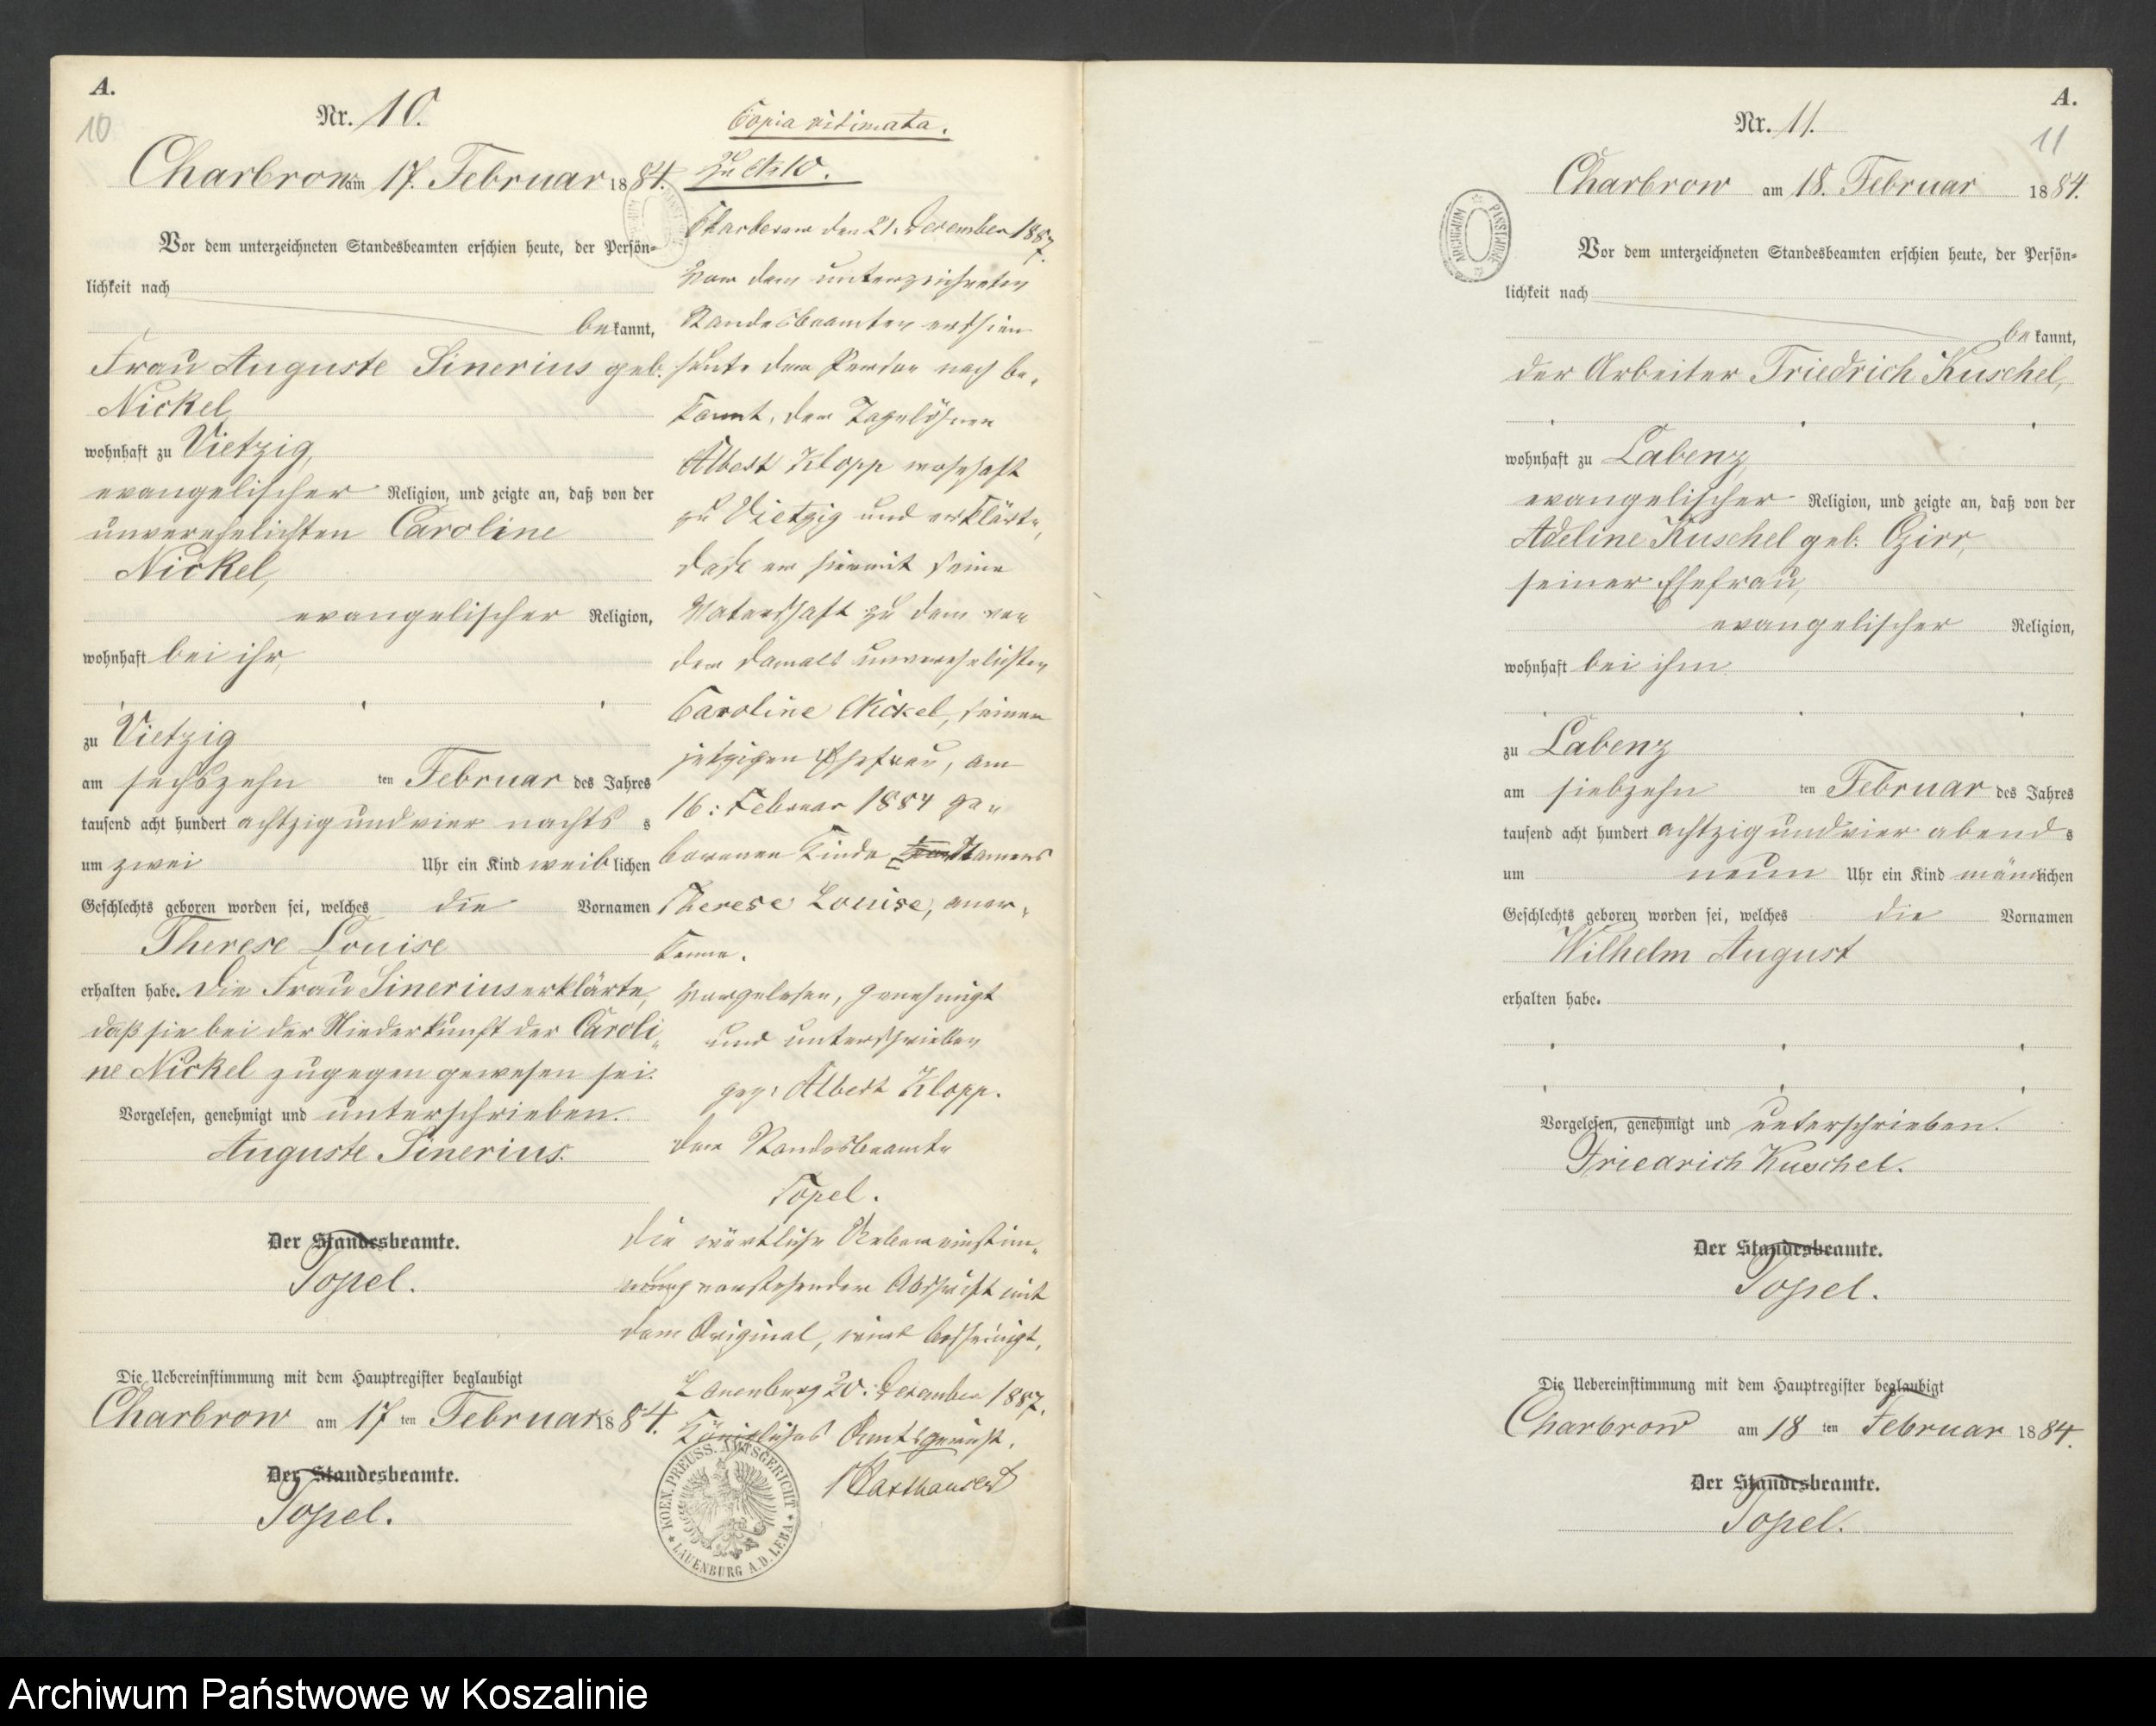 A.
10
Nr. 10.
Charbrow am 17. Februar 1884.
Vor dem unterzeichneten Standesbeamten erschien heute, der Persön-
lichkeit nach
bekannt,
Frau Auguste Sinerius geb.
Nickel,
wohnhaft zu Vietzig,
evangelischer Religion, und zeigte an, daß von der
unverehelichten Caroline
Nickel,
evangelischer Religion,
wohnhaft bei ihr,
zu Vietzig
am sechszehn ten Februar des Jahres
tausend acht hundert achtzig und vier nachts
um zwei Uhr ein Kind weiblichen
Geschlechts geboren worden sei, welches die Vornamen
Therese Louise
erhalten habe. Die Frau Sinerius erklärte,
daß sie bei der Niederkunft der Caroli-
ne Nickel zugegen gewesen sei.
Vorgelesen, genehmigt und unterschrieben.
Auguste Sinerius.
Der Standesbeamte.
Topel.
Die Uebereinstimmung mit dem Hauptregister beglaubigt
Charbrow am 17 ten Februar 1884.
Der Standesbeamte.
Topel.
Copia vidimata.
zu No 10.
Charbrow den 21. Dezember 1887.
Vor dem unterzeichneten
Standesbeamten erschien
heute der Person nach be-
kannt, der Tagelöhner
Albert Klopp wohnhaft
zu Vietzig und erklärte,
daß er hiermit seine
Vaterschaft zu dem von
der damals unverehelichten
Caroline Nickel, seiner
jetzigen Ehefrau, am
16. Februar 1884 ge-
borenen Kinde Namens
Therese Louise, aner-
kenne.
Vorgelesen, genehmigt
und unterschrieben
gez. Albert Klopp.
der Standesbeamte
Topel.
Die wörtliche Uebereinstim-
mung vorstehender Abschrift mit
dem Original, wird bescheinigt,
Lauenburg 30. Dezember 1887.
Königliches Amtsgericht.
KOEN. PREUSS. AMTSGERICHT
LAUENBURG A.D. LEBA
A.
11
Nr. 11.
Charbrow am 18. Februar 1884.
ARCHIWUM PAŃSTWOWE
Vor dem unterzeichneten Standesbeamten erschien heute, der Persön-
lichkeit nach
bekannt,
der Arbeiter Friedrich Kuschel,
wohnhaft zu Labenz
evangelischer Religion, und zeigte an, daß von der
Adeline Kuschel geb. Gzirr,
seiner Ehefrau,
evangelischer Religion,
wohnhaft bei ihm
zu Labenz
am siebzehn ten Februar des Jahres
tausend acht hundert achtzig und vier abends
um neun Uhr ein Kind männlichen
Geschlechts geboren worden sei, welches die Vornamen
Wilhelm August
erhalten habe.
Vorgelesen, genehmigt und unterschrieben.
Friedrich Kuschel.
Der Standesbeamte.
Topel.
Die Uebereinstimmung mit dem Hauptregister beglaubigt
Charbrow am 18 ten Februar 1884.
Der Standesbeamte.
Topel.
Archiwum Państwowe w Koszalinie